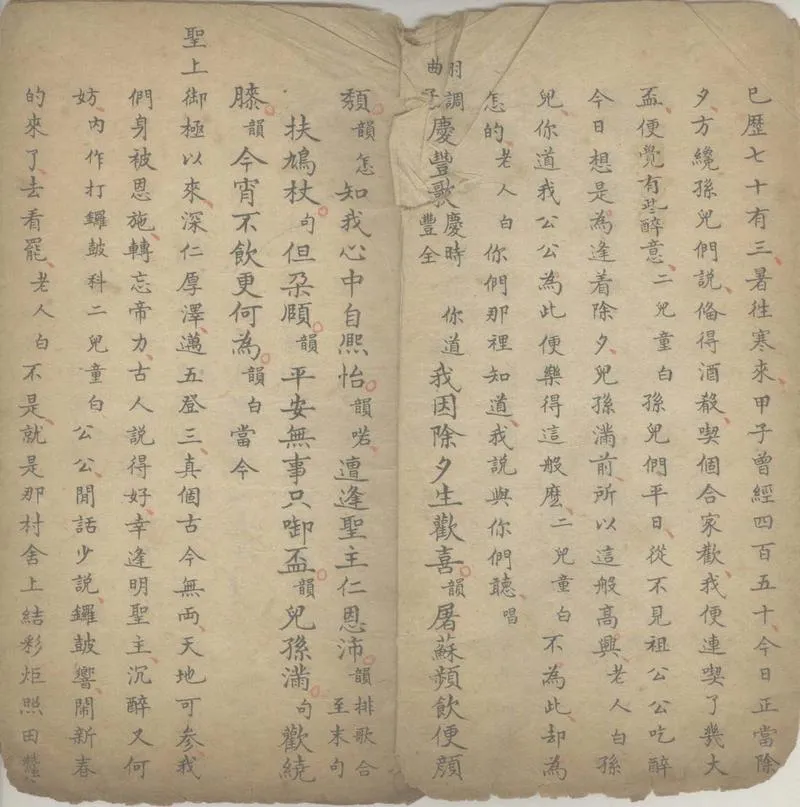 已歷七十有三、暑徃寒來、甲子曾經四百五十、今日正當除
夕、方纔孫兒們說、俻得酒殽、喫個合家歡、我便連喫了幾大
盃、便覺有些醉意、二兒童白 孫兒們平日、從不見祖公公吃醉
今日想是為逢着除夕、兒孫滿前、所以這般高興、老人白 孫
兒、你道我公公為此便樂得這般麼、二兒童白 不為此、却為
怎的、老人白 你們那裡知道、我說與你們聽、唱
羽調曲子 慶豐歌 慶時豐全 你道我因除夕生歡喜韻屠蘇頻飲便顏
頽韻怎知我心中自熈怡韻喏遭逢聖主仁恩沛韻排歌合至末句
扶鳩杖句但朶頥韻平安無事只啣盃韻兒孫滿句歡繞
膝韻今宵不飲更何為韻白當今
聖上御極以來、深仁厚澤、邁五登三、真個古今無両、天地可參、我
們身被恩施、轉忘帝力、古人説得好、幸逢明聖主、沉醉又何
妨、內作打鑼皷科二兒童白、公公、閒話少說、鑼皷響、鬧新春
的來了、去看罷、老人白 不是、就是那村舍上結彩炬照田蠶